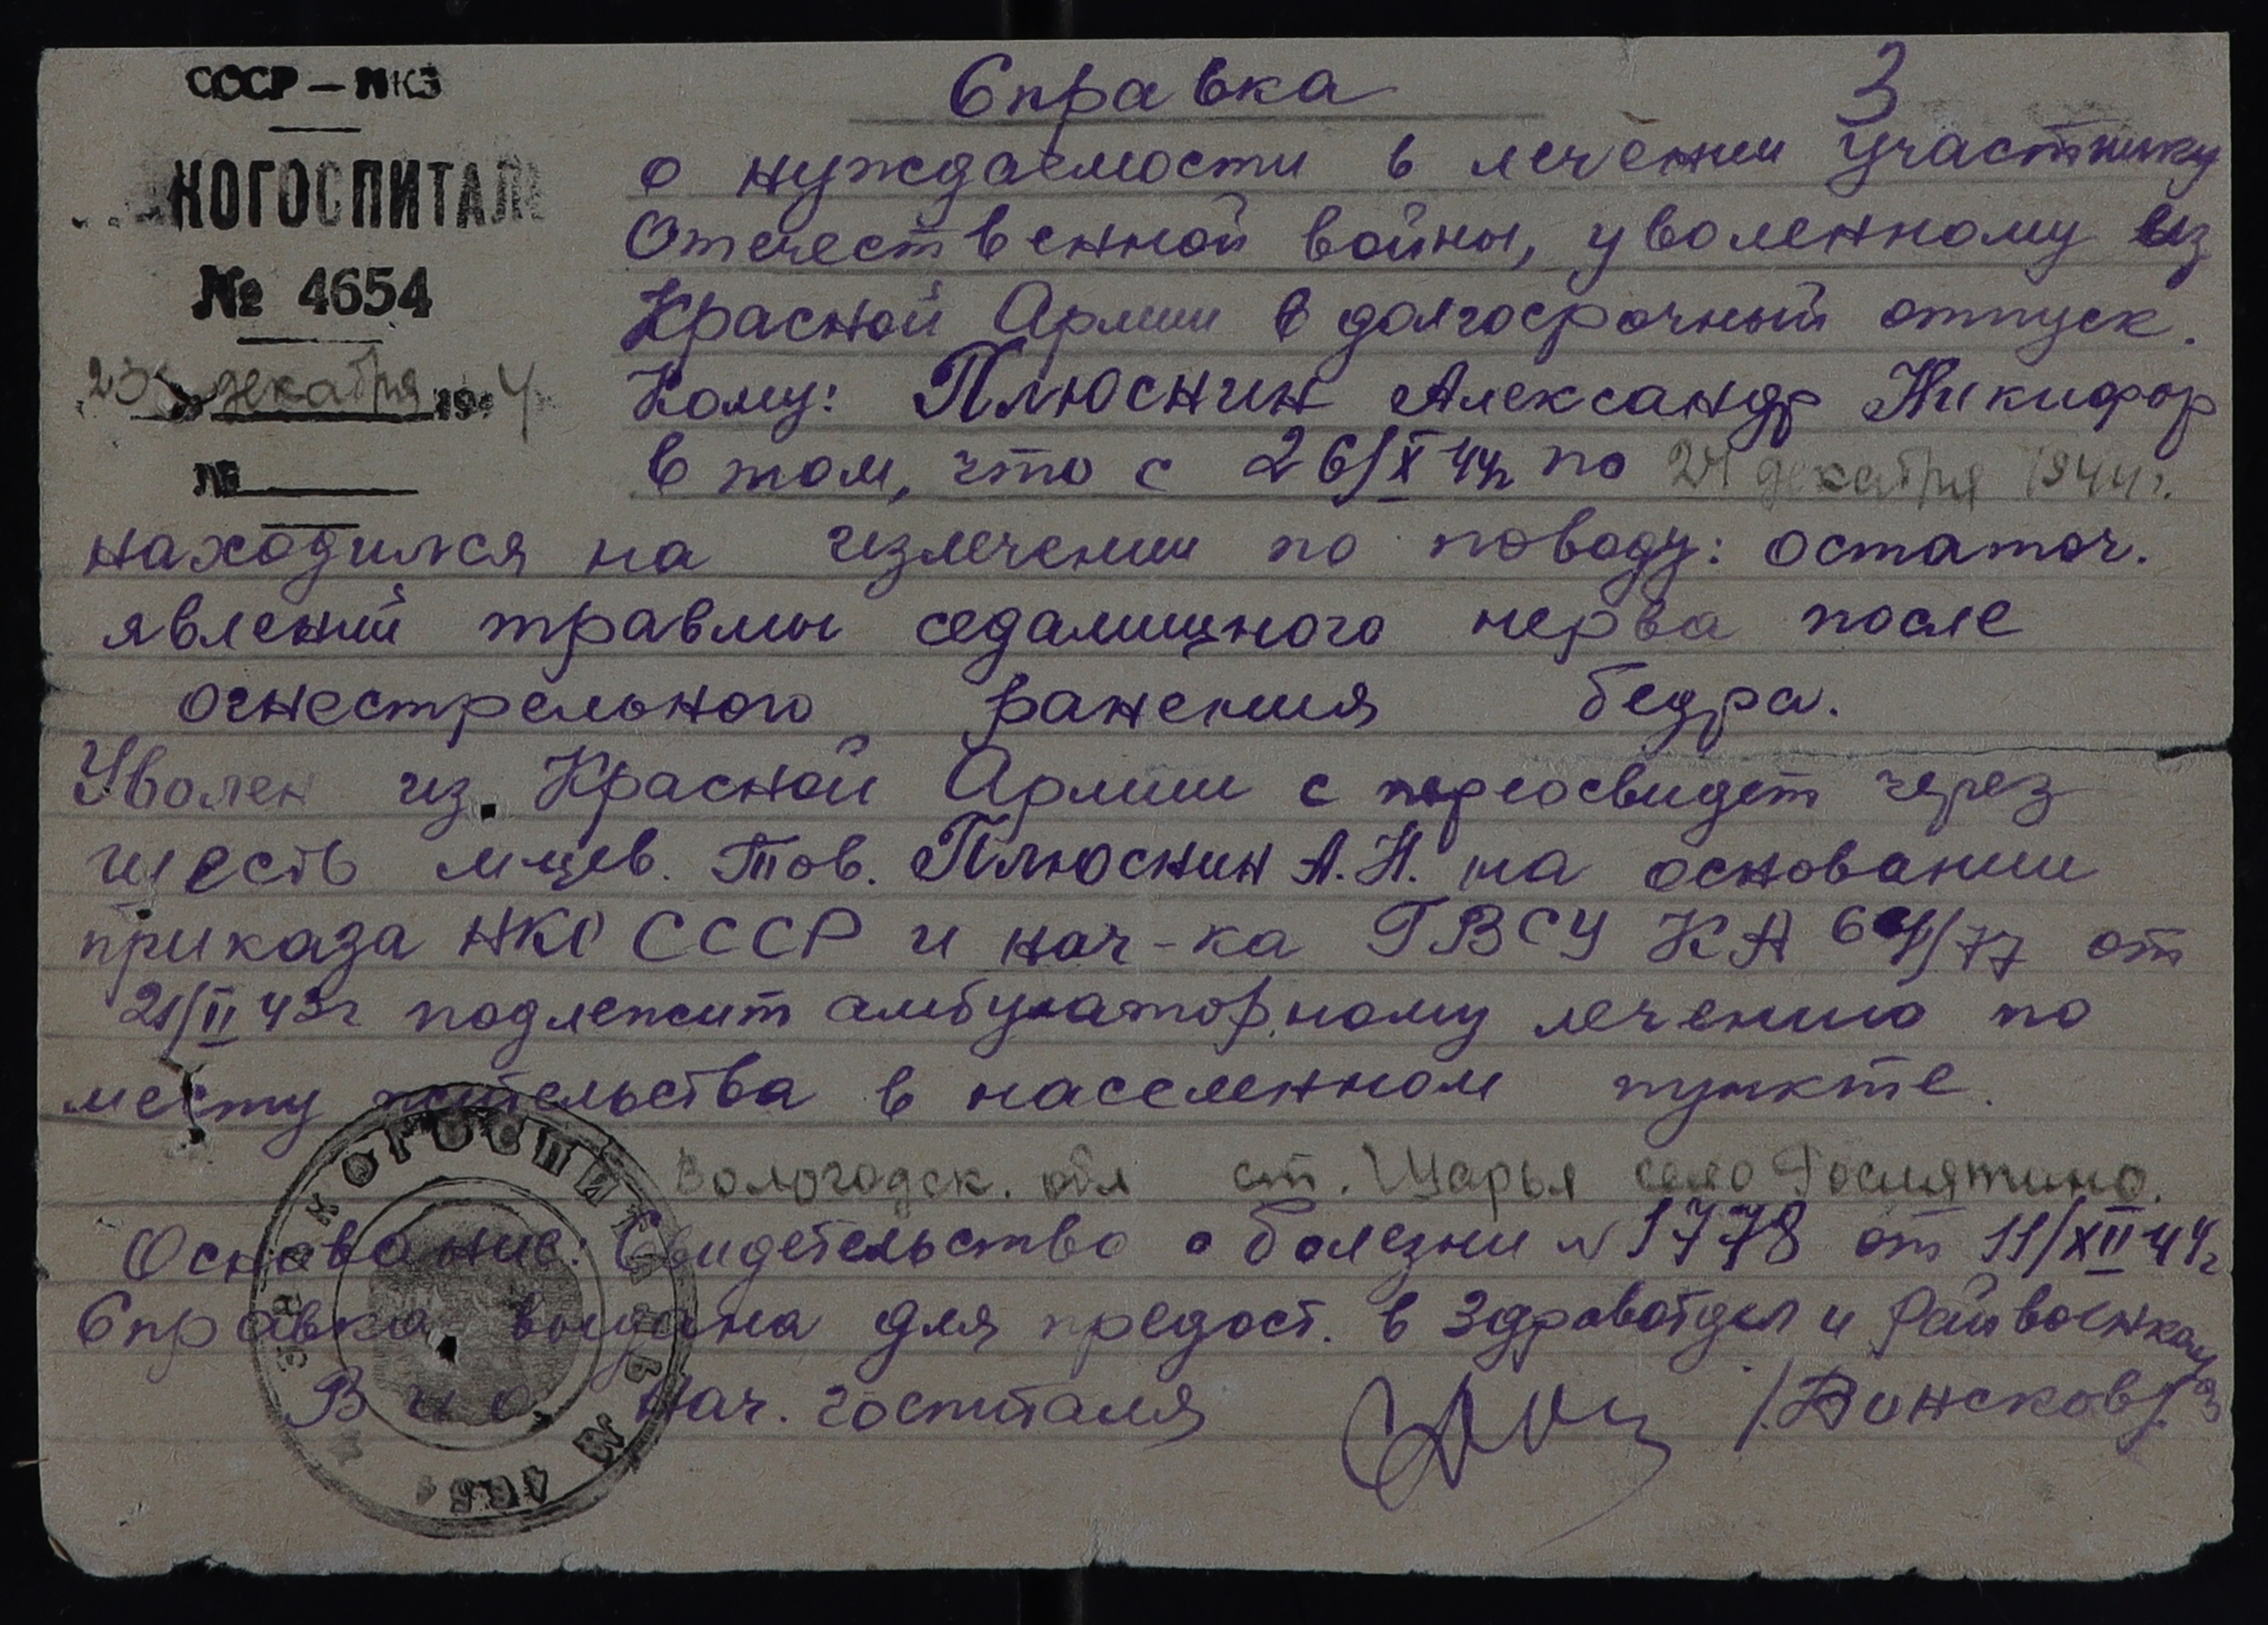 СССР — НКЗ
КОГОСПИТАЛ
№ 4654
23 декабря 194 4
№
3
Справка
о нуждаемости в лечении участнику
Отечественной войны, уволенному из
Красной Армии в долгосрочный отпуск.
Кому: Плюснин Александр Никифор
в том, что с 26/X 44г по 24 декабря 1944 г.
находился на излечении по поводу: остаточ.
явлений травмы седалищного нерва после
огнестрельного ранения бедра.
Уволен из Красной Армии с переосвидет через
шесть м-цев. Тов. Плюснин А.Н. на основании
приказа НКО СССР и нач-ка ГВСУ КА 64/77 от
21/II 43г подлежит амбулаторному лечению по
месту жительства в населенном пункте.
Вологодск. обл ст. Шарья село Рослятино.
Основание: Свидетельство о болезни № 1778 от 11/XII 44г
Справка выдана для предост. в Здравотдел и Райвоенкомат
В и о Нач. госпиталя
КОГОСПИТ